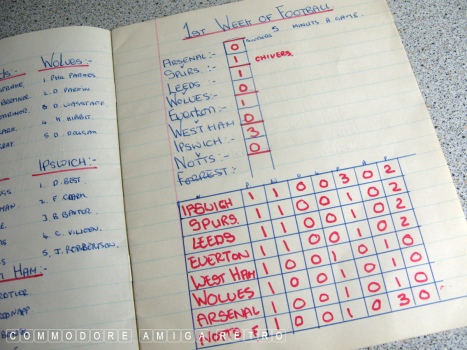 WOLVES:-
1. PHIL PARKES.
2. D. PARKIN
5. D. DOUGAN.
IPSWICH:-
1. D. BEST.
3. B BAXTER.
4. C. VILJOEN.
5. J. ROBBERTSON.
HAM:-
1ST WEEK OF FOOTBALL
5 MINUTS A GAME.
ARSENAL:- 0
SPURS:- 1 CHIVERS.
LEEDS:- 1
WOLVES:- 0
EVERTON:- 1
WEST HAM 0
IPSWICH:- 3
NOTTS:- 0
FORREST:-
IPSWICH 1 1 0 0 3 0 2
SPURS. 1 1 0 0 1 0 2
LEEDS 1 1 0 0 1 0 2
EVERTON 1 1 0 0 1 0 2
WEST HAM 1 0 0 1 0 1 0
WOLVES 1 0 0 1 0 1 0
ARSENAL 1 0 0 1 0 1 0
NOTTS F. 1 0 0 1 0 3 0
COMMODORE AMIGA RETRO